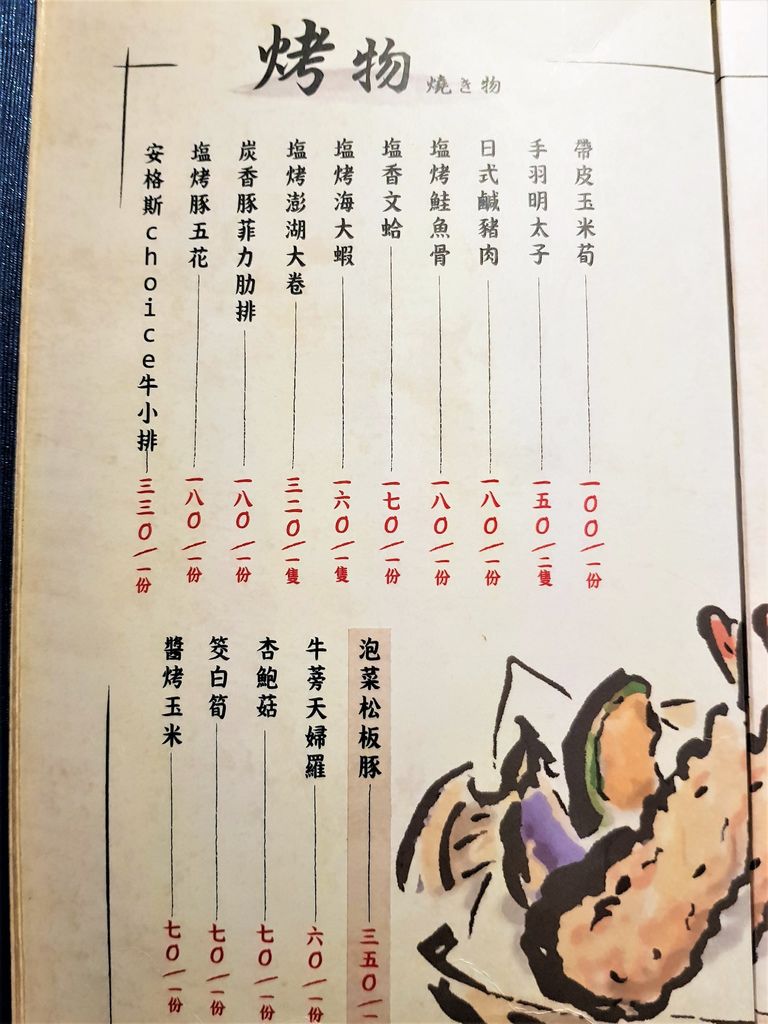 烤物
燒き物
帶皮玉米荀 一00/一份
手羽明太子 一五0/二隻
日式鹹豬肉 一八0/一份
塩烤鮭魚骨 一八0/一份
塩香文蛤 一七0/一份
塩烤海大蝦 一六0/一隻
塩烤澎湖大卷 三二0/一隻
炭香豚菲力肋排 一八0/一份
塩烤豚五花 一八0/一份
安格斯choice牛小排 三三0/一份
泡菜松板豚 三五0/一
牛蒡天婦羅 六0/一份
杏鮑菇 七0/一份
筊白筍 七0/一份
醬烤玉米 七0/一份